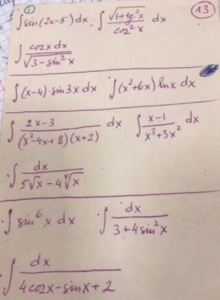 ① 13
∫sin(2x-5)dx, ∫ √(1+tg²x) / cos²x dx
∫ cosx dx / √(3-sin²x)
∫(x-4)·sin3x dx ∫(x²+6x) ln x dx
∫ 2x-3 / (x²-4x+8)(x+2) dx ∫ x-1 / x³+3x² dx
∫ dx / 5√x - 4 ∜x
∫sin⁶x dx · ∫ dx / 3+4sin²x
∫ dx / 4cosx-sinx+2